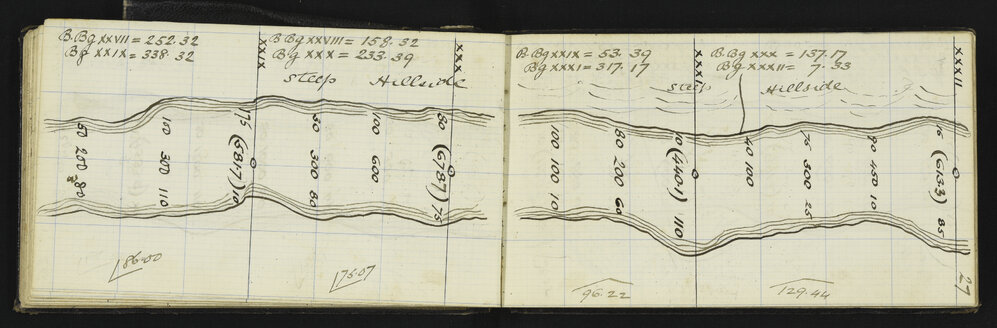 B.Bg XXVII = 252.32
Bg XXIX = 338.32
XXIX
B.Bg XXVIII = 158.32
Bg XXX = 233.39
XXX
Steep Hillside
50 200 80
10 300 110
75 (6817) 90
50 300 80
100 600
80 (6787) 75
86.00
75.07
B.Bg XXIX = 53.39
Bg XXXI = 317.17
XXXI
B.Bg XXX = 137.17
Bg XXXII = 7.33
XXXII
Steep Hillside
100 100 10
80 200 60
10 (4401) 110
40 100
75 300 25
90 450 10
75 (6133) 85
96.22
129.44
27